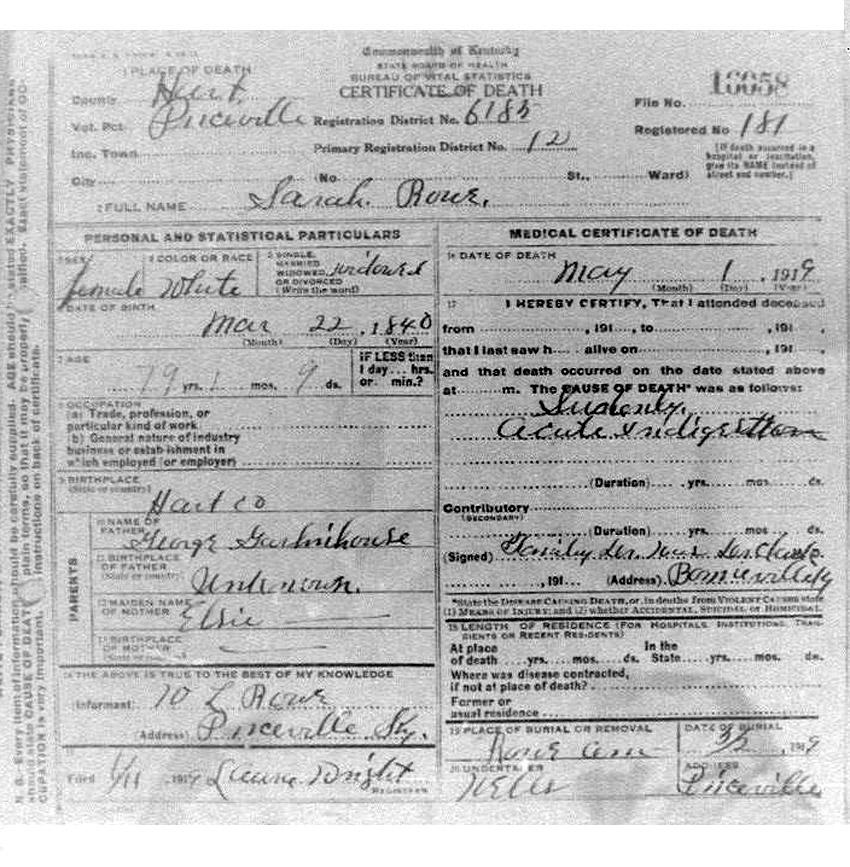 Commonwealth of Kentucky
STATE BOARD OF HEALTH
BUREAU OF VITAL STATISTICS
CERTIFICATE OF DEATH
16658
File No.
Registered No 181
[If death occurred in a hospital or institution, give its NAME instead of street and number.]
1 PLACE OF DEATH
County Hart
Vot. Pct. Priceville Registration District No. 6185
Inc. Town Primary Registration District No. 12
City (No. St., Ward)
2 FULL NAME Sarah Rowe.
PERSONAL AND STATISTICAL PARTICULARS
3 SEX Female
4 COLOR OR RACE White
5 SINGLE, MARRIED WIDOWED, OR DIVORCED (Write the word) widowed
6 DATE OF BIRTH
Mar 22, 1840
(Month) (Day) (Year)
7 AGE
79 yrs. 1 mos. 9 ds.
IF LESS than 1 day... hrs. or min.?
8 OCCUPATION
(a) Trade, profession, or
particular kind of work
(b) General nature of industry
business or establishment in
which employed (or employer)
9 BIRTHPLACE
(State or country)
Hart co
PARENTS
10 NAME OF FATHER George
11 BIRTHPLACE OF FATHER (State or country) Unknown.
12 MAIDEN NAME OF MOTHER Elsie
13 BIRTHPLACE OF MOTHER (State or country)
14 THE ABOVE IS TRUE TO THE BEST OF MY KNOWLEDGE
(Informant) W L Rowe
(Address) Priceville Ky.
Filed 1919 Wright
REGISTRAR
MEDICAL CERTIFICATE OF DEATH
16 DATE OF DEATH
May 1, 1919
(Month) (Day) (Year)
17 I HEREBY CERTIFY, That I attended deceased
from , 191 , to , 191
that I last saw h alive on , 191
and that death occurred on the date stated above
at m. The CAUSE OF DEATH* was as follows:
Sudenly.
acute indigestion
(Duration) yrs. mos. ds.
Contributory
(SECONDARY)
(Duration) yrs. mos. ds.
(Signed) Family
, 191 (Address) Bonnieville Ky
*State the DISEASE CAUSING DEATH, or, in deaths from VIOLENT CAUSES state
(1) MEANS OF INJURY; and (2) whether ACCIDENTAL, SUICIDAL or HOMICIDAL.
18 LENGTH OF RESIDENCE (FOR HOSPITALS, INSTITUTIONS, TRANSIENTS OR RECENT RESIDENTS)
At place of death yrs. mos. ds. In the State yrs. mos. ds.
Where was disease contracted,
if not at place of death?
Former or
usual residence
19 PLACE OF BURIAL OR REMOVAL
Rowe Cem
DATE OF BURIAL
1919
20 UNDERTAKER
ADDRESS
Priceville